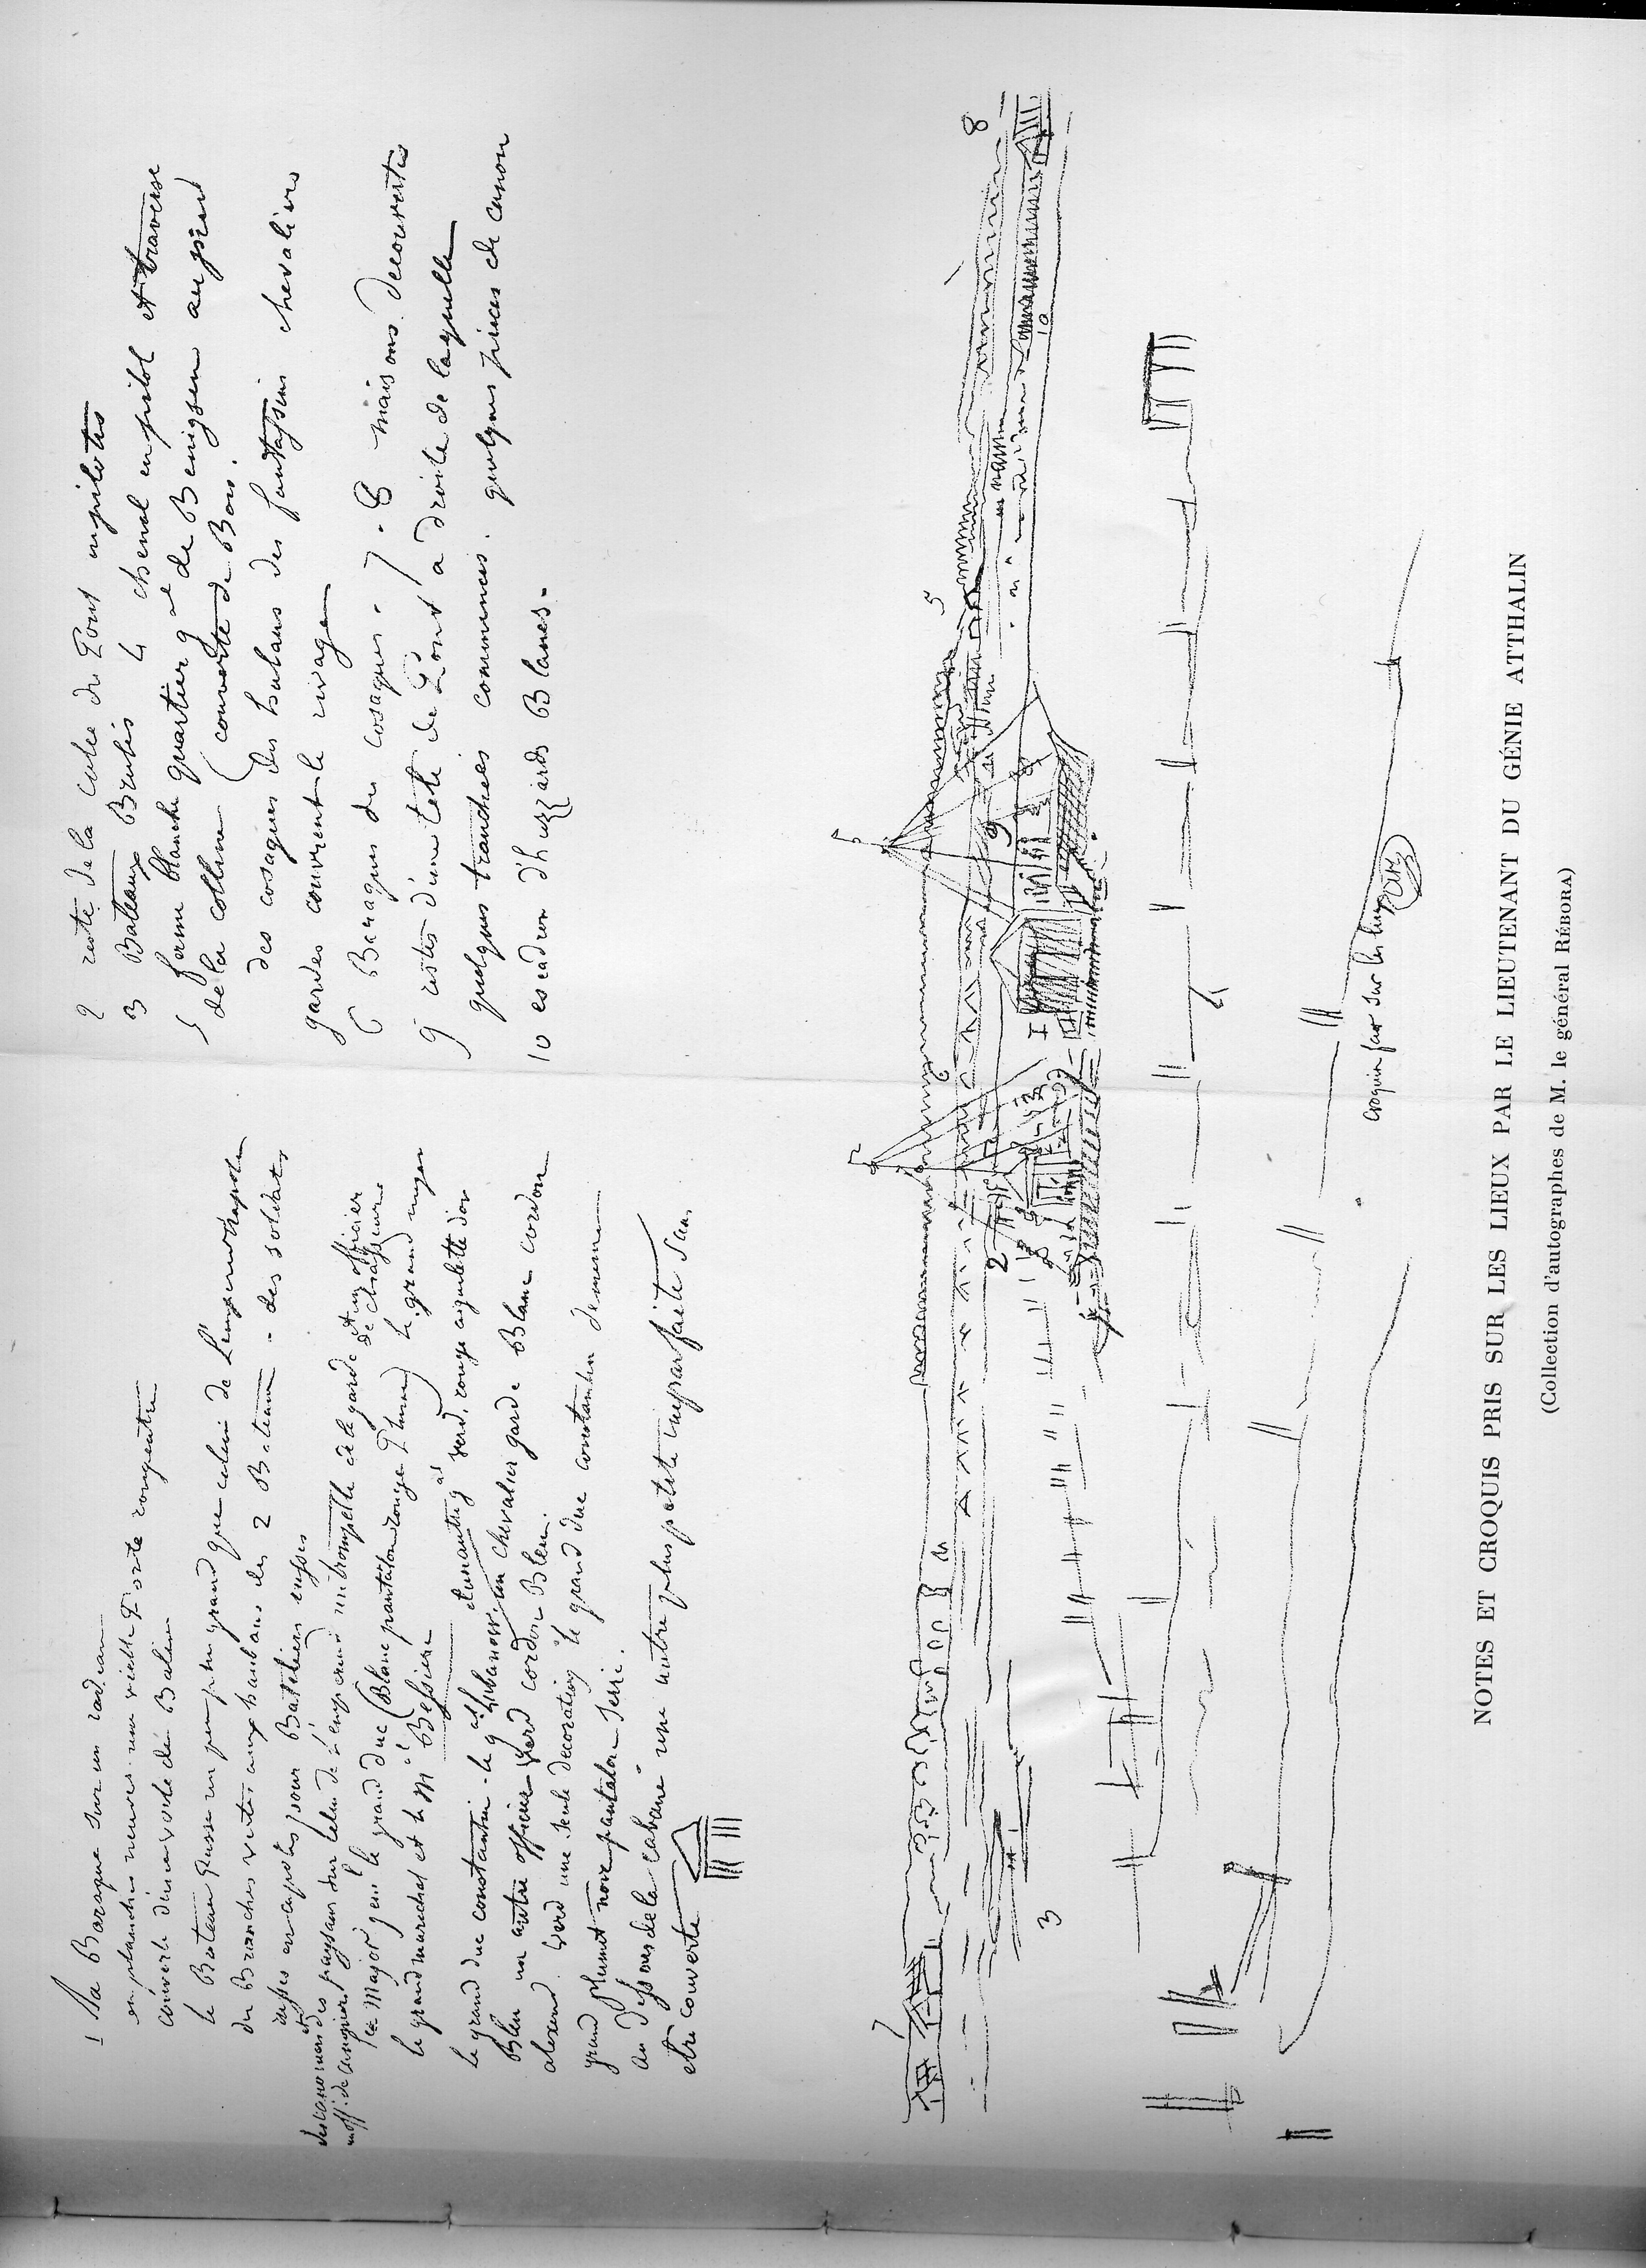 1 la Baraque sur un radeau
en planches neuves. une vieille Porte rongentrée
couverte d'une voile de Batim
le Bateau Russe un peu plus grand que celui de l'empereur Napoleon
des Branches vertes aux haubans des 2 Bateaux - des soldats
russes en capotes pour Bateliers russes
des paysans sur celui de l'empereur un trompette de la garde et un officier
de chasseurs
le Major genl le grand duc (Blanc pantalon rouge Plume) le grand
le grand marechal et le Mal Bessiere
le grand duc constantin - le gal verd, rouge aiguilette d'or
Bleu un autre officier verd cordon Bleu. un chevalier garde Blanc cordon
alexand. verd une seule decoration le grand duc constantin de meme
grand plumet noir pantalon
au dessous de la cabane une autre plus petite imparfaite sans
etre couverte
2 reste de la culée du Pont en pilotis
3 Bateaux Brulés 4 chenal en pilot et traverse
5 ferme blanche quartier gal de Benigsen au pied
de la colline (couverte de Bois.
des cosaques des hulans des fantassins chevaliers
gardes couvrent le rivage
6 Baraques des cosaques. 7. 8 maisons decouvertes
9 restes d'une tete de Pont a droite de laquelle
quelques tranchées commencées. quelques pieces de canon
10 escadron d'huzzards Blancs.
5
8
6
9
10
1
2
7
3
croquis fait sur les lieux
NOTES ET CROQUIS PRIS SUR LES LIEUX PAR LE LIEUTENANT DU GÉNIE ATTHALIN
(Collection d'autographes de M. le général RÉBORA)